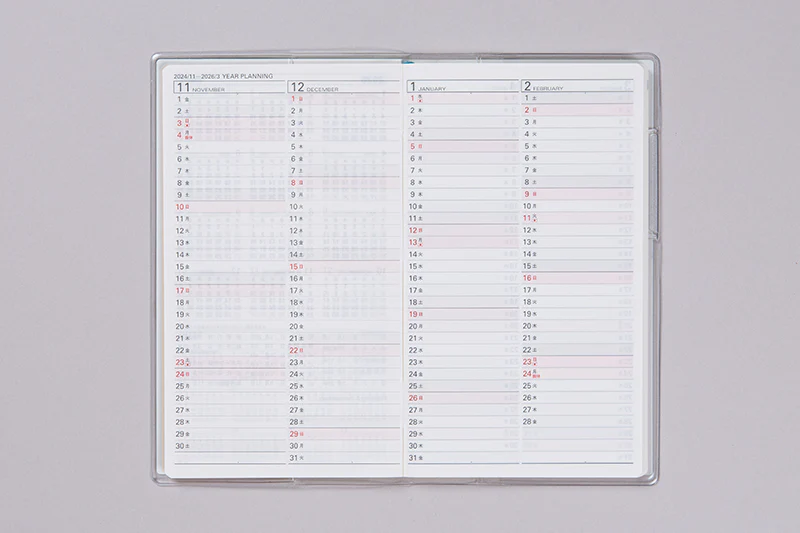 2024/11–2026/3 YEAR PLANNING
11 NOVEMBER
1 金
2 土
3 日
4 月 振休
5 火
6 水
7 木
8 金
9 土
10 日
11 月
12 火
13 水
14 木
15 金
16 土
17 日
18 月
19 火
20 水
21 木
22 金
23 土
24 日
25 月
26 火
27 水
28 木
29 金
30 土
12 DECEMBER
1 日
2 月
3 火
4 水
5 木
6 金
7 土
8 日
9 月
10 火
11 水
12 木
13 金
14 土
15 日
16 月
17 火
18 水
19 木
20 金
21 土
22 日
23 月
24 火
25 水
26 木
27 金
28 土
29 日
30 月
31 火
1 JANUARY
1 水
2 木
3 金
4 土
5 日
6 月
7 火
8 水
9 木
10 金
11 土
12 日
13 月
14 火
15 水
16 木
17 金
18 土
19 日
20 月
21 火
22 水
23 木
24 金
25 土
26 日
27 月
28 火
29 水
30 木
31 金
2 FEBRUARY
1 土
2 日
3 月
4 火
5 水
6 木
7 金
8 土
9 日
10 月
11 火
12 水
13 木
14 金
15 土
16 日
17 月
18 火
19 水
20 木
21 金
22 土
23 日
24 月 振休
25 火
26 水
27 木
28 金